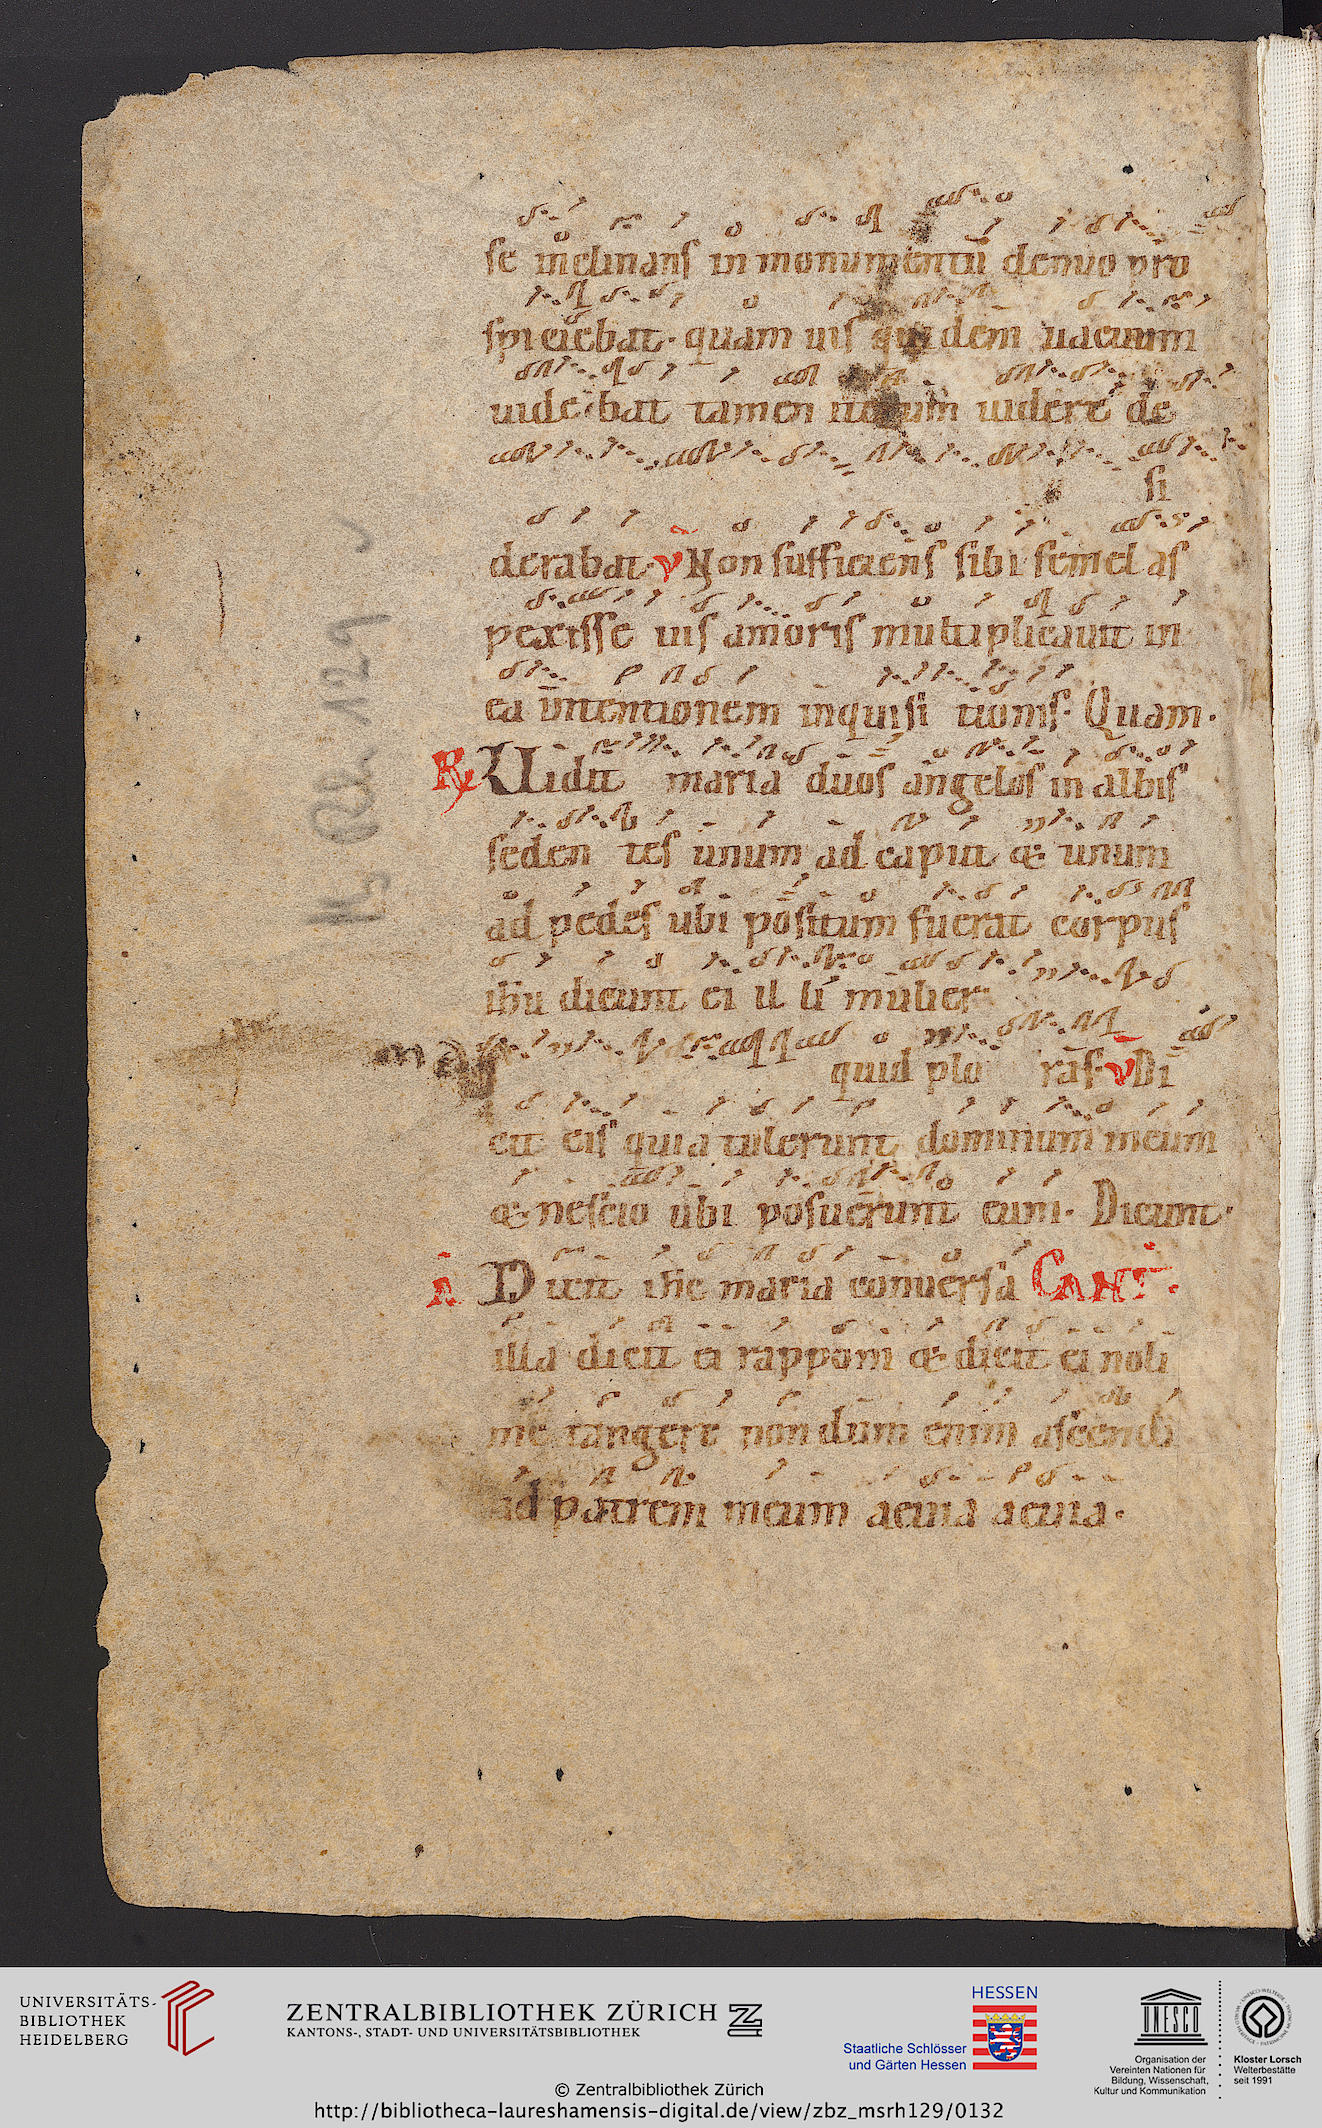 se inclinans in monumentū denuo pro
spiciebat· quam uis quidem uacuum
uidebat tamen iterum uidere de
si
derabat· V Non sufficiens sibi semel as
pexisse uis amoris multiplicauit in
ea intentionem inquisi tionis· Quam·
R Uidit maria duos angelos in albis
seden tes unum ad caput & unum
ad pedes ubi positum fuerat corpus
ihu dicunt ei il li mulier
quid plo ras· V Di
cit eis quia tulerunt dominum meum
& nescio ubi posuerunt eum· Dicunt·
A Dicit ihc maria conuersa CANT·
illa dicit ei rapponi & dicit ei noli
me tangere non dum enim ascendi
ad patrem meum aeuia aeuia·
UNIVERSITÄTS-
BIBLIOTHEK
HEIDELBERG
ZENTRALBIBLIOTHEK ZÜRICH
KANTONS-, STADT- UND UNIVERSITÄTSBIBLIOTHEK
HESSEN
Staatliche Schlösser
und Gärten Hessen
UNESCO
Organisation der
Vereinten Nationen für
Bildung, Wissenschaft,
Kultur und Kommunikation
Kloster Lorsch
Welterbestätte
seit 1991
© Zentralbibliothek Zürich
http://bibliotheca-laureshamensis-digital.de/view/zbz_msrh129/0132